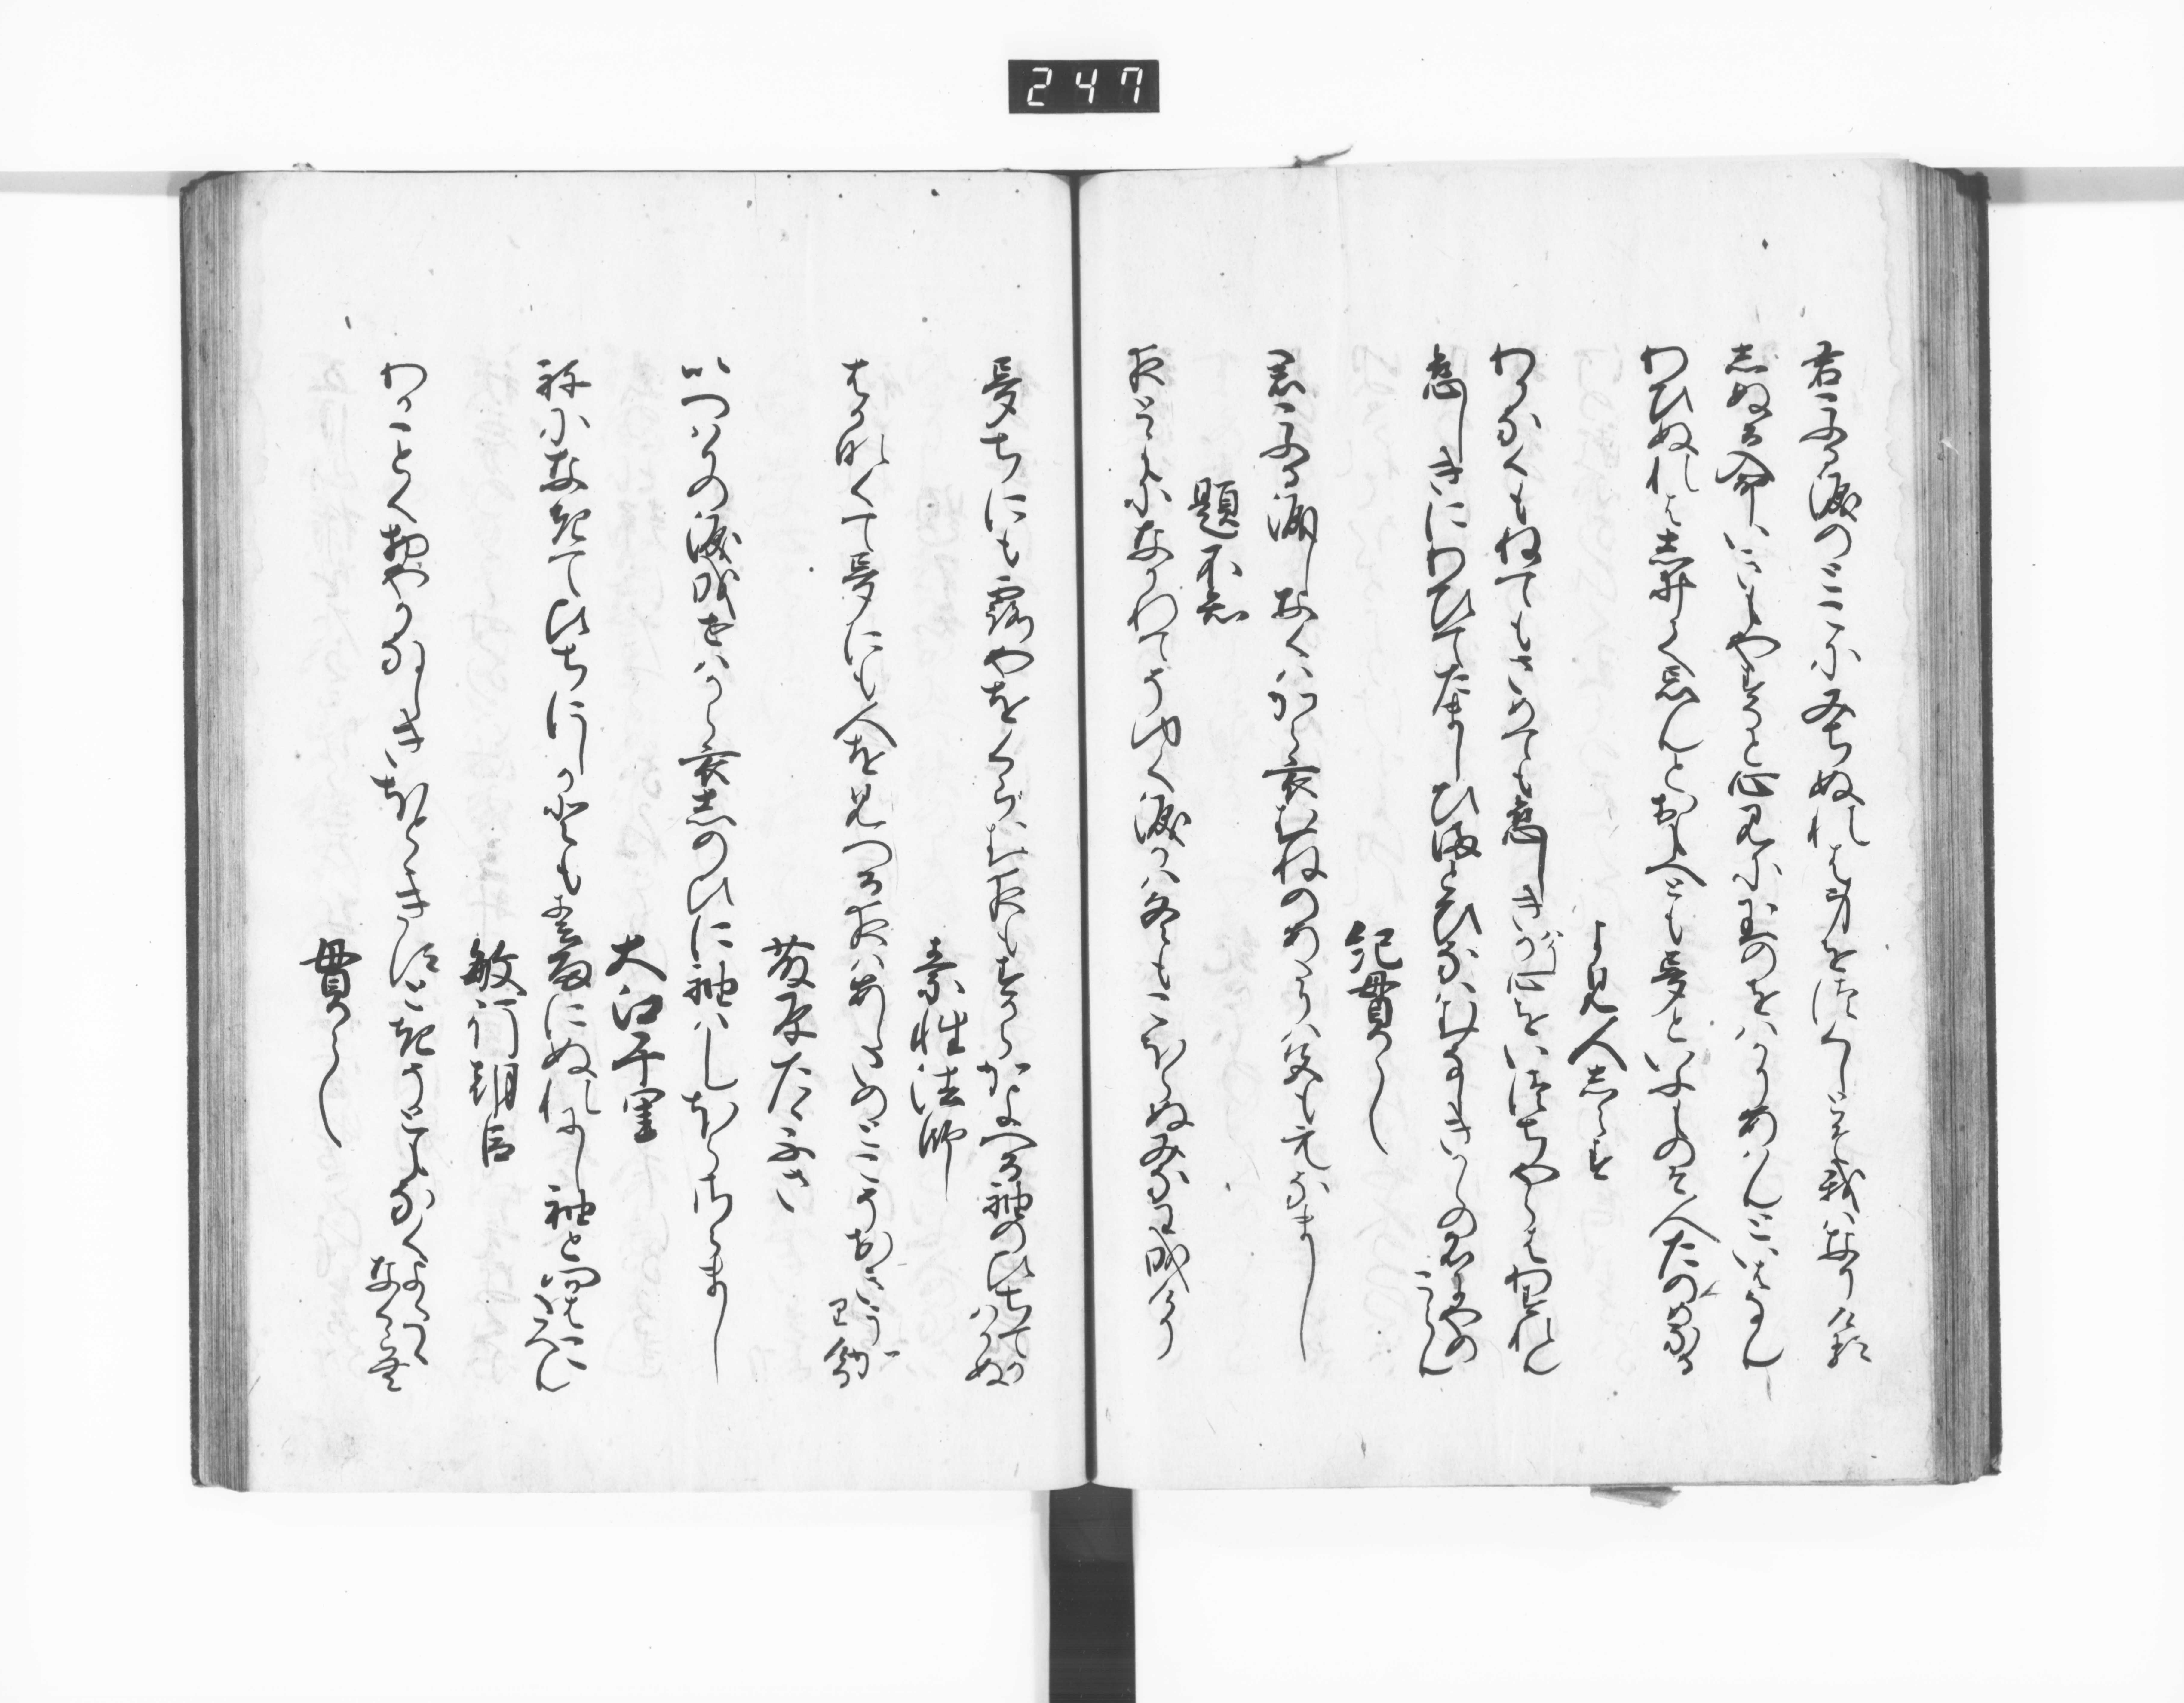 247
君こふる涙のとこにみちぬれはみをつくしとそ我はなりける
しぬる命いきもやすると心みに玉のをはかりあはんといはなん
わひぬれはしゐてわすれんとおもへとも夢といふものそ人たのめなる
よみ人しらす
わりなくもねてもさめても恋しきか心をいつちやらはわすれん
恋しきにわひてたましひまとひなはむなしきからの名にやのこらん
紀貫之
君こふる涙しなくは から衣むねのあたりは色もえなまし
題不知
世とともになかれてそゆく涙川冬もこほらぬみなわ成けり
夢ちにも露やをくらむ夜もすからかよへる袖のひちてかはかぬ
素性法師
はかなくて夢にも人を見つる夜はあしたのとこそおきうかりける
藤原たゝふさ
いつはりの涙なりせはから衣しのひに袖はしほらさらまし
大江千里
ねになきてひちにしかとも春雨にぬれにし袖ととはゝこたへん
敏行朝臣
わかことく物やかなしき時鳥時そともなくよたゝなくらん
貫之